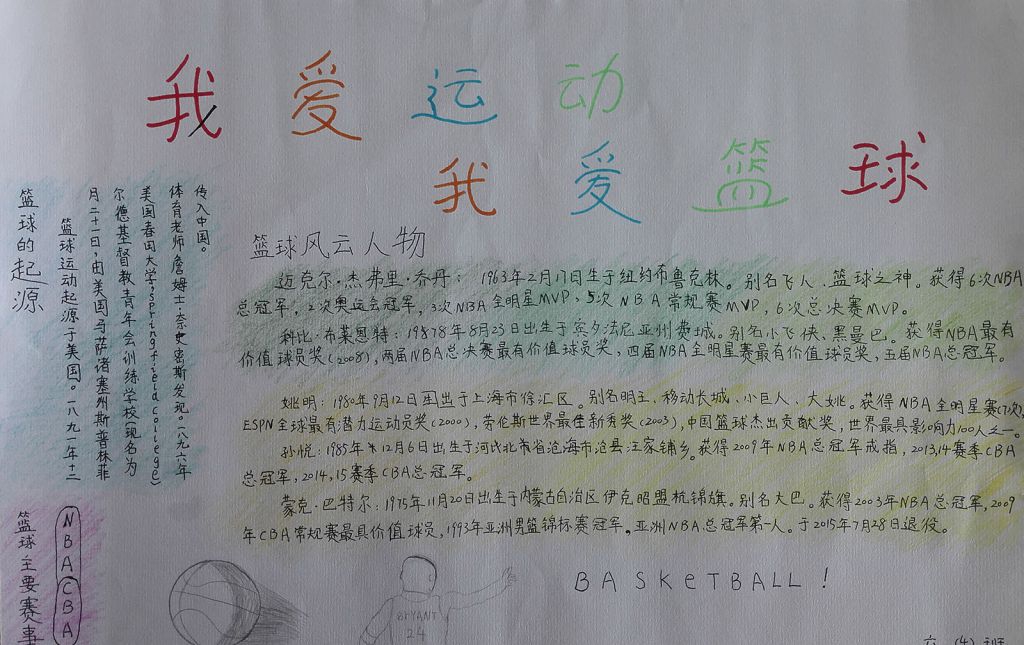 我爱运动
我爱篮球
篮球的起源
篮球运动起源于美国。一八九一年十二
月二十一日，由美国马萨诸塞州斯普林菲
尔德基督教青年会训练学校（现名为
美国春田大学，springfieldcollege）
体育老师詹姆士·奈史密斯发现。一八九六年
传入中国。
篮球风云人物
迈克尔·杰弗里·乔丹：1963年2月17日生于纽约布鲁克林。别名飞人、篮球之神。获得6次NBA
总冠军，2次奥运会冠军，3次NBA全明星MVP、5次NBA常规赛MVP，6次总决赛MVP。
科比·布莱恩特：1978年8月23日出生于宾夕法尼亚州费城。别名小飞侠、黑曼巴。获得NBA最有
价值球员奖（2008），两届NBA总决赛最有价值球员奖，四届NBA全明星赛最有价值球员奖，五届NBA总冠军。
姚明：1980年9月12日出于上海市徐汇区。别名明王、移动长城、小巨人、大姚。获得NBA全明星赛（7次）
ESPN全球最有潜力运动员奖（2000），劳伦斯世界最佳新秀奖（2003），中国篮球杰出贡献奖，世界最具影响力100人之一。
孙悦：1985年12月6日出生于河北省沧海市沧县汪家铺乡。获得2009年NBA总冠军戒指，2013,14赛季CBA
总冠军，2014,15赛季CBA总冠军。
蒙克·巴特尔：1975年11月20日出生于内蒙古自治区伊克昭盟杭锦旗。别名大巴。获得2003年NBA总冠军，2009
年CBA常规赛最具价值球员，1993年亚洲男篮锦标赛冠军。亚洲NBA总冠军第一人。于2015年7月28日退役。
篮球主要赛事
NBA
CBA
BRYANT
24
BASKeTBALL！
六（4）班